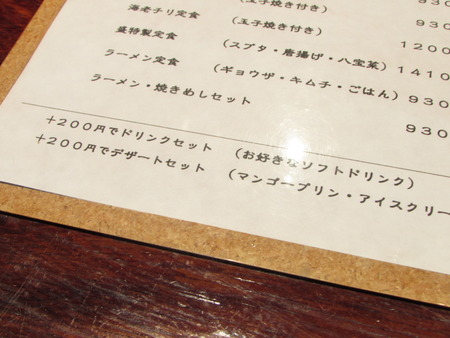 (玉子焼き付き) 930
海老チリ定食 (玉子焼き付き) 930
盛特製定食 (スブタ・唐揚げ・八宝菜) 1200
ラーメン定食 (ギョウザ・キムチ・ごはん) 1410
ラーメン・焼きめしセット 930
930
+200円でドリンクセット (お好きなソフトドリンク)
+200円でデザートセット (マンゴープリン・アイスクリー